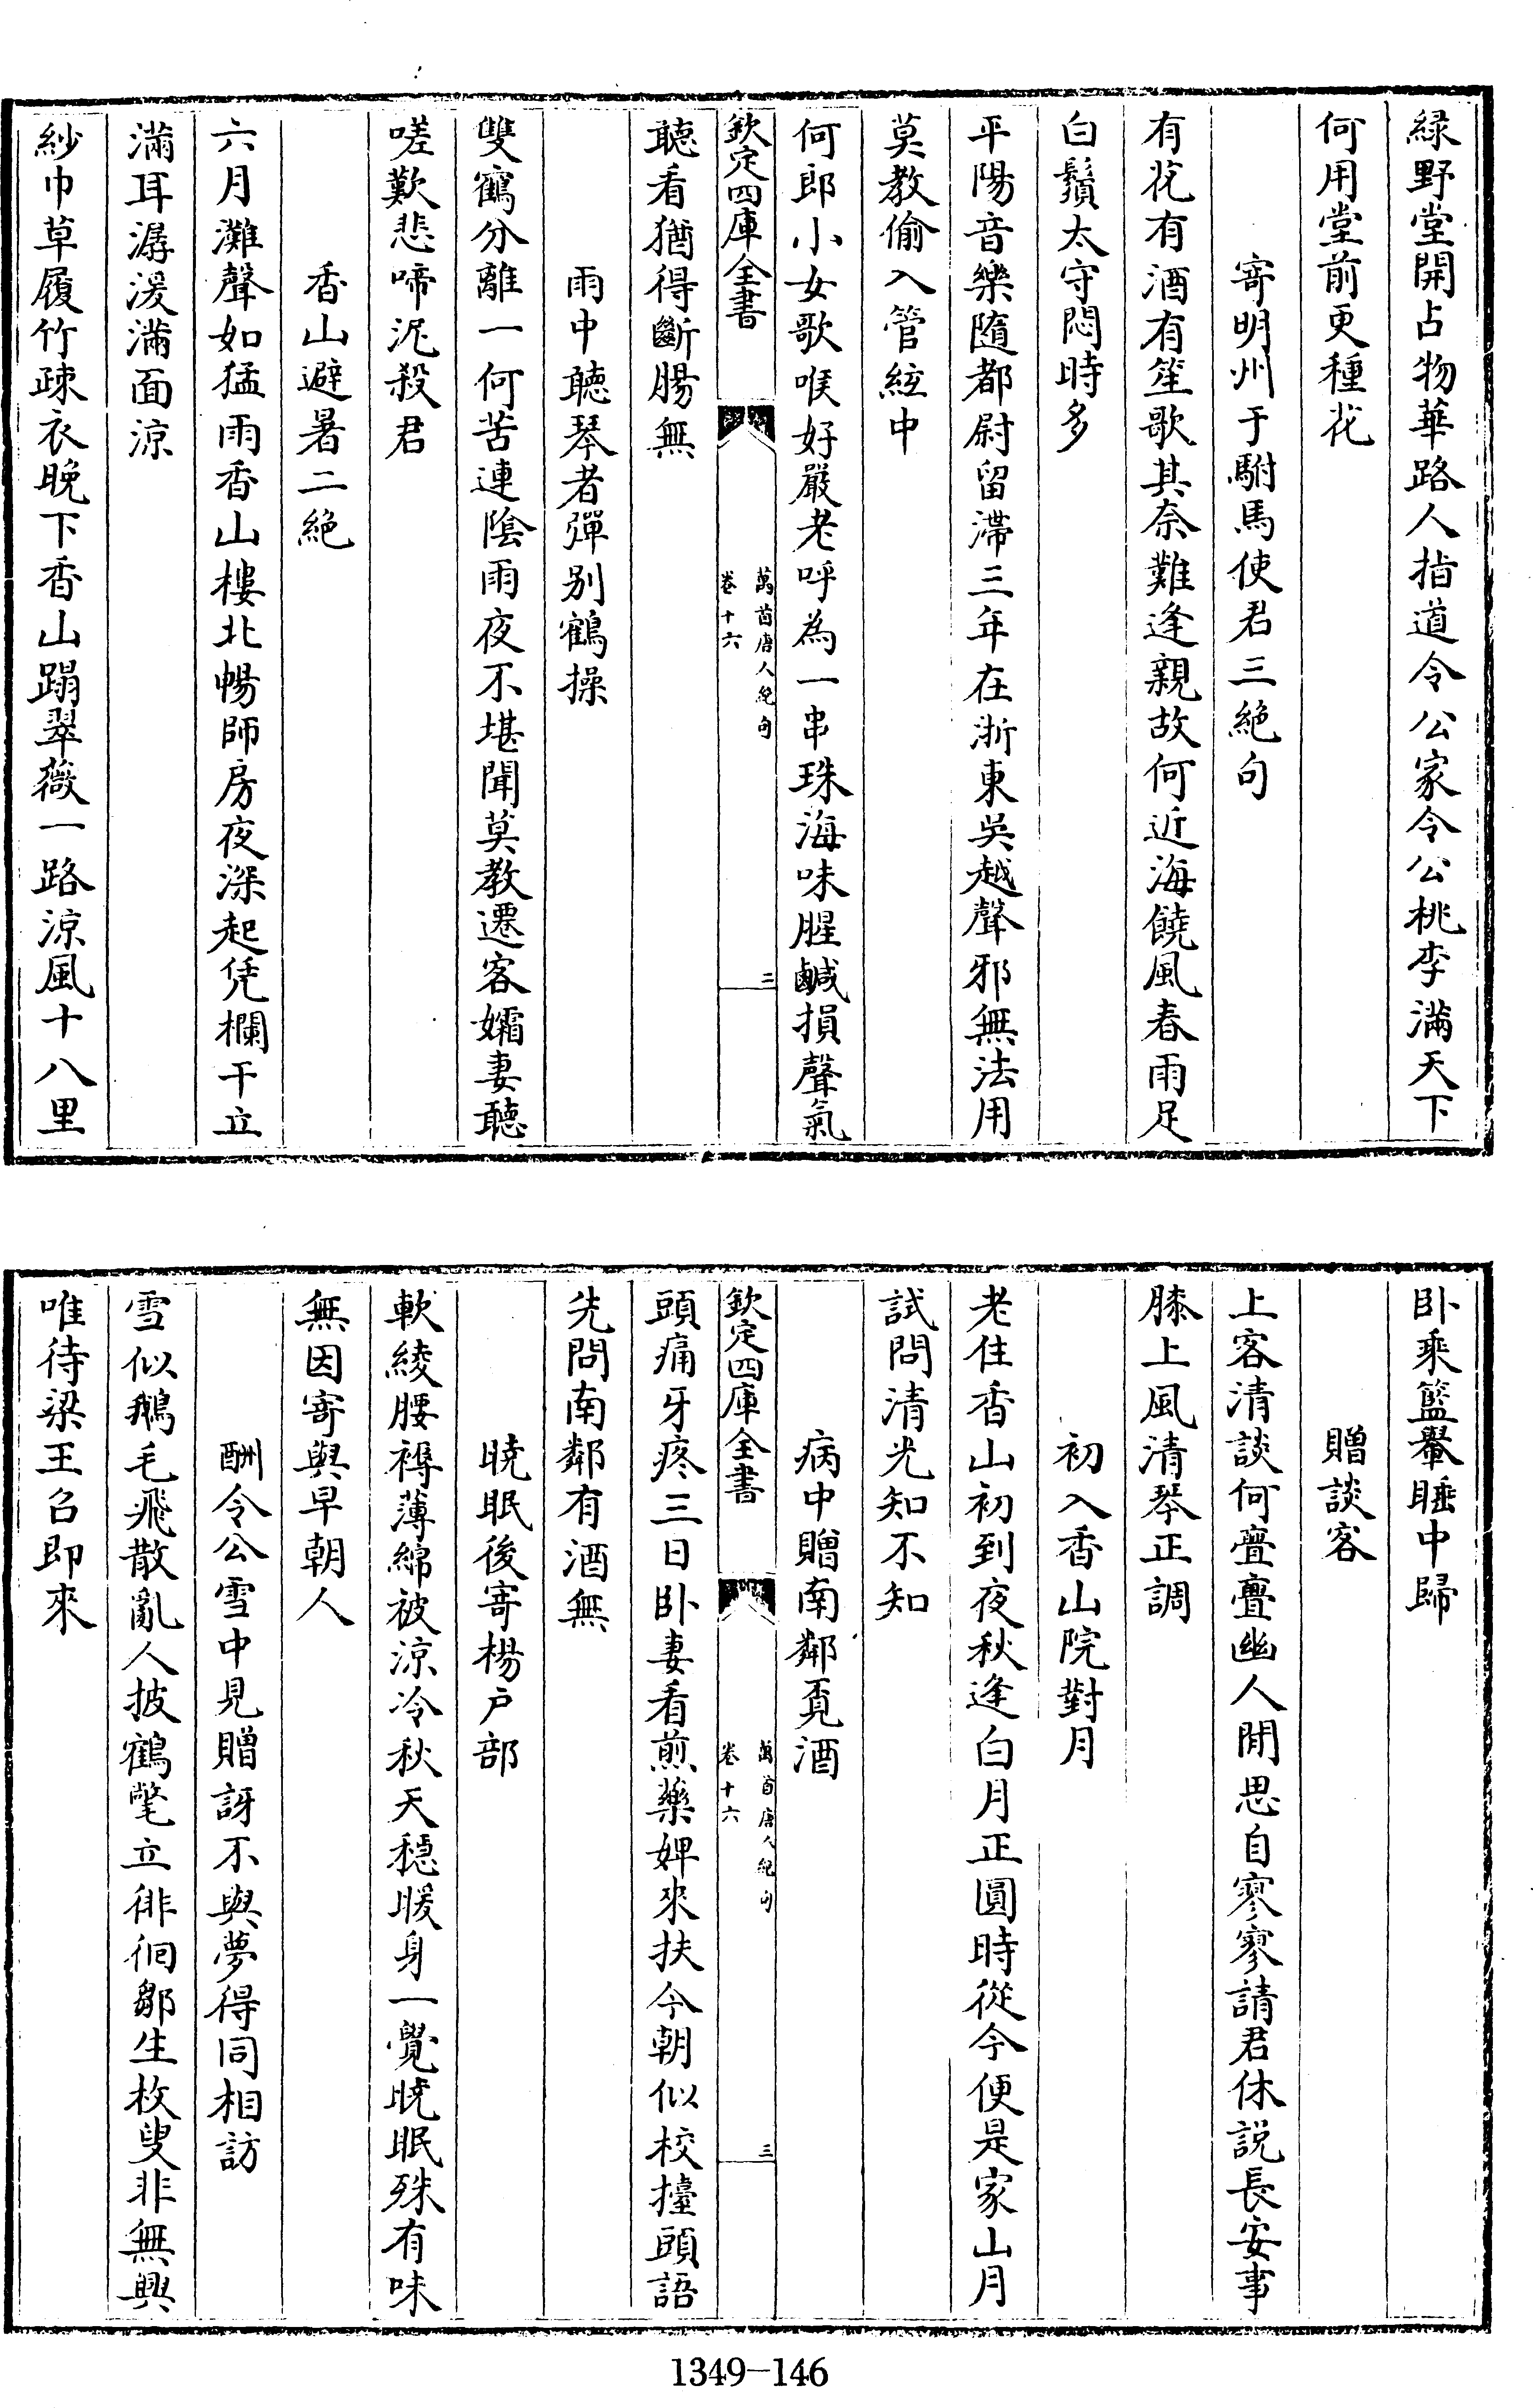 緑野堂開占物華路人指道令公家令公桃李滿天下
何用堂前更種花
寄明州于駙馬使君三絶句
有花有酒有笙歌其奈難逢親故何近海饒風春雨足
白鬚太守悶時多
平陽音樂隨都尉留滯三年在浙東吳越聲邪無法用
莫教偷入管絃中
何郎小女歌喉好嚴老呼為一串珠海味腥鹹損聲氣
欽定四庫全書
萬首唐人絶句
卷十六
二
聽看猶得斷腸無
雨中聽琴者彈别鶴操
雙鶴分離一何苦連陰雨夜不堪聞莫教遷客孀妻聽
嗟歎悲啼泥殺君
香山避暑二絶
六月灘聲如猛雨香山樓北暢師房夜深起凭欄干立
滿耳潺湲滿面涼
紗巾草履竹疎衣晚下香山蹋翠薇一路涼風十八里
卧乘籃轝睡中歸
贈談客
上客清談何亹亹幽人閒思自寥寥請君休説長安事
膝上風清琴正調
初入香山院對月
老住香山初到夜秋逢白月正圓時從今便是家山月
試問清光知不知
病中贈南鄰覓酒
欽定四庫全書
萬首唐人絶句
卷十六
三
頭痛牙疼三日卧妻看煎藥婢來扶今朝似校擡頭語
先問南鄰有酒無
曉眠後寄楊户部
軟綾腰褥薄綿被涼冷秋天穩暖身一覺曉眠殊有味
無因寄與早朝人
酬令公雪中見贈訝不與夢得同相訪
雪似鵝毛飛散亂人披鶴氅立徘徊鄒生枚叟非無興
唯待梁王召即來
1349-146